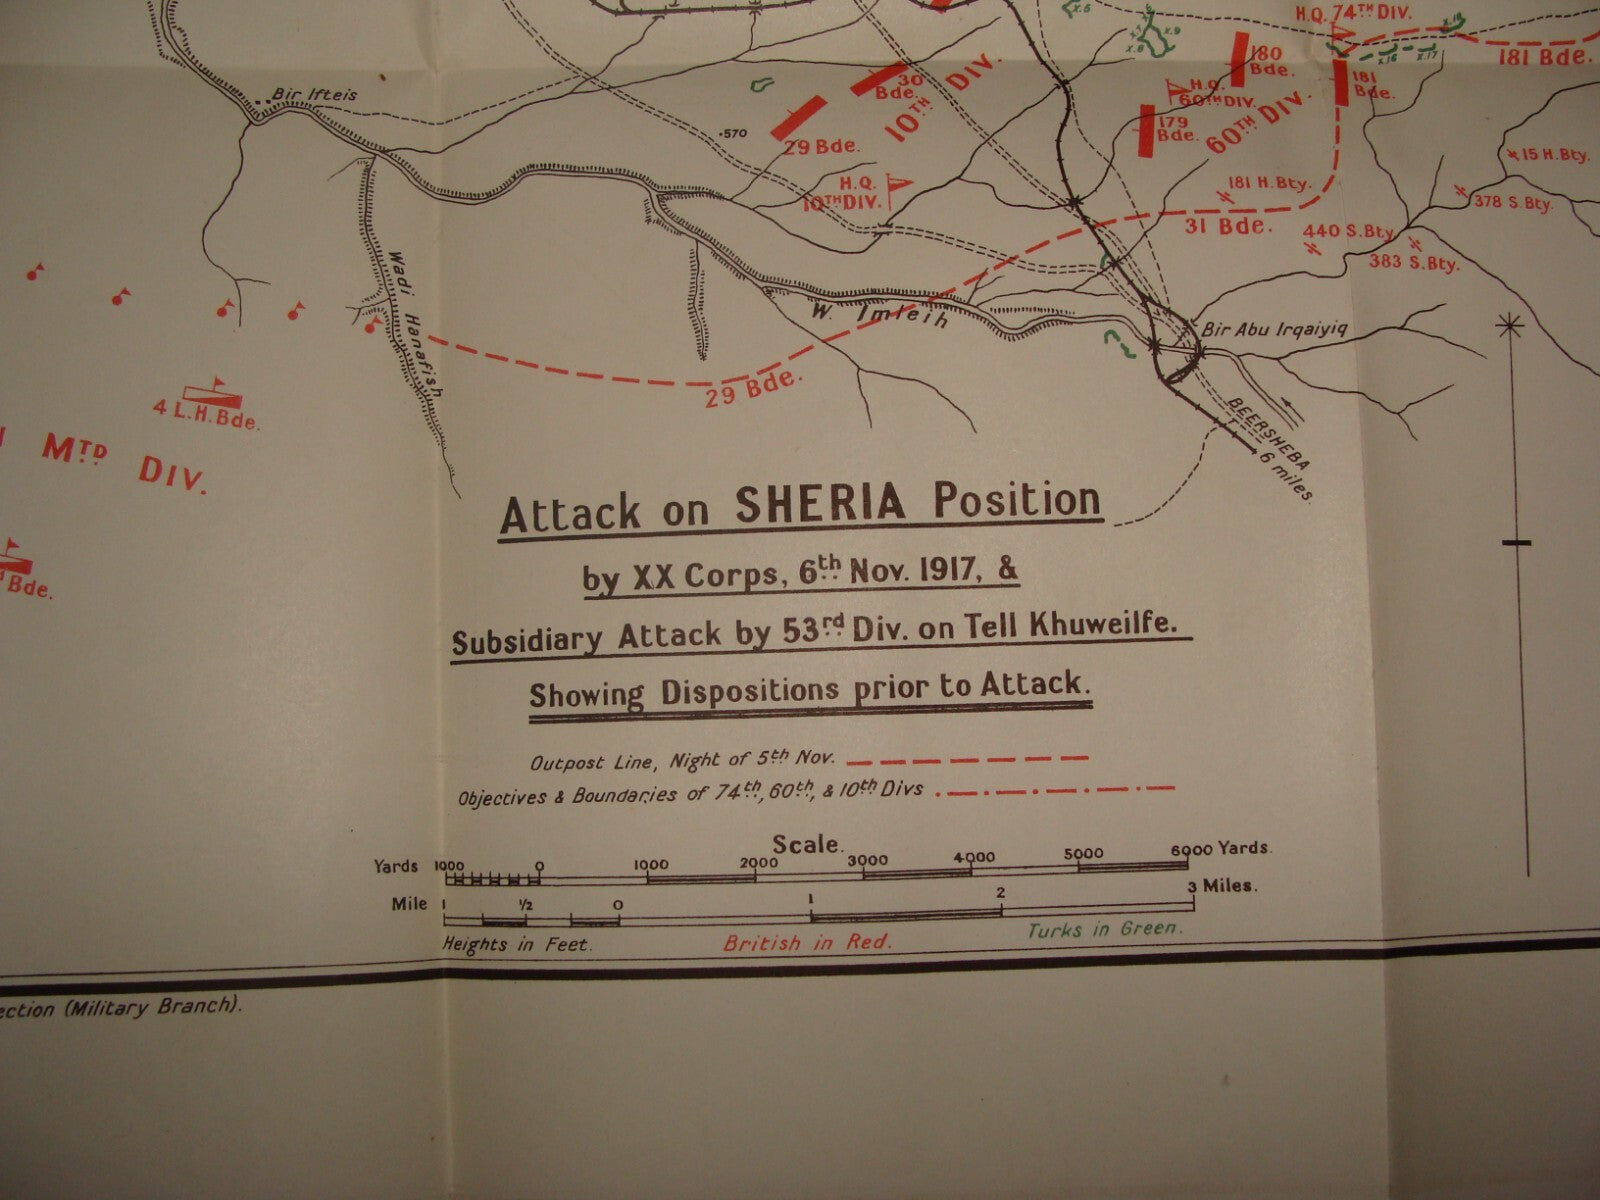 X.5
X.7
X.9
X.8
H.Q. 74TH DIV.
X.18
X.16
X.17
181 Bde.
180
Bde.
181
Bde.
H.Q.
60TH DIV.
179
Bde.
60TH DIV.
30
Bde.
10TH DIV.
29 Bde.
.570
Bir Ifteis
H.Q.
10TH DIV.
181 H.Bty.
15 H.Bty.
378 S.Bty.
31 Bde.
440 S.Bty.
383 S.Bty.
Wadi Hanafish
W. Imleih
Bir Abu Irqaiyiq
29 Bde.
4 L.H.Bde.
BEERSHEBA
6 miles.
MTD DIV.
Bde.
Attack on SHERIA Position
by XX Corps, 6th Nov. 1917, &
Subsidiary Attack by 53rd Div. on Tell Khuweilfe.
Showing Dispositions prior to Attack.
Outpost Line, Night of 5th Nov.
Objectives & Boundaries of 74th, 60th, & 10th Divs
Scale.
Yards 1000 0 1000 2000 3000 4000 5000 6000 Yards.
Mile 1 ½ 0 1 2 3 Miles.
Heights in Feet. British in Red. Turks in Green.
ection (Military Branch).